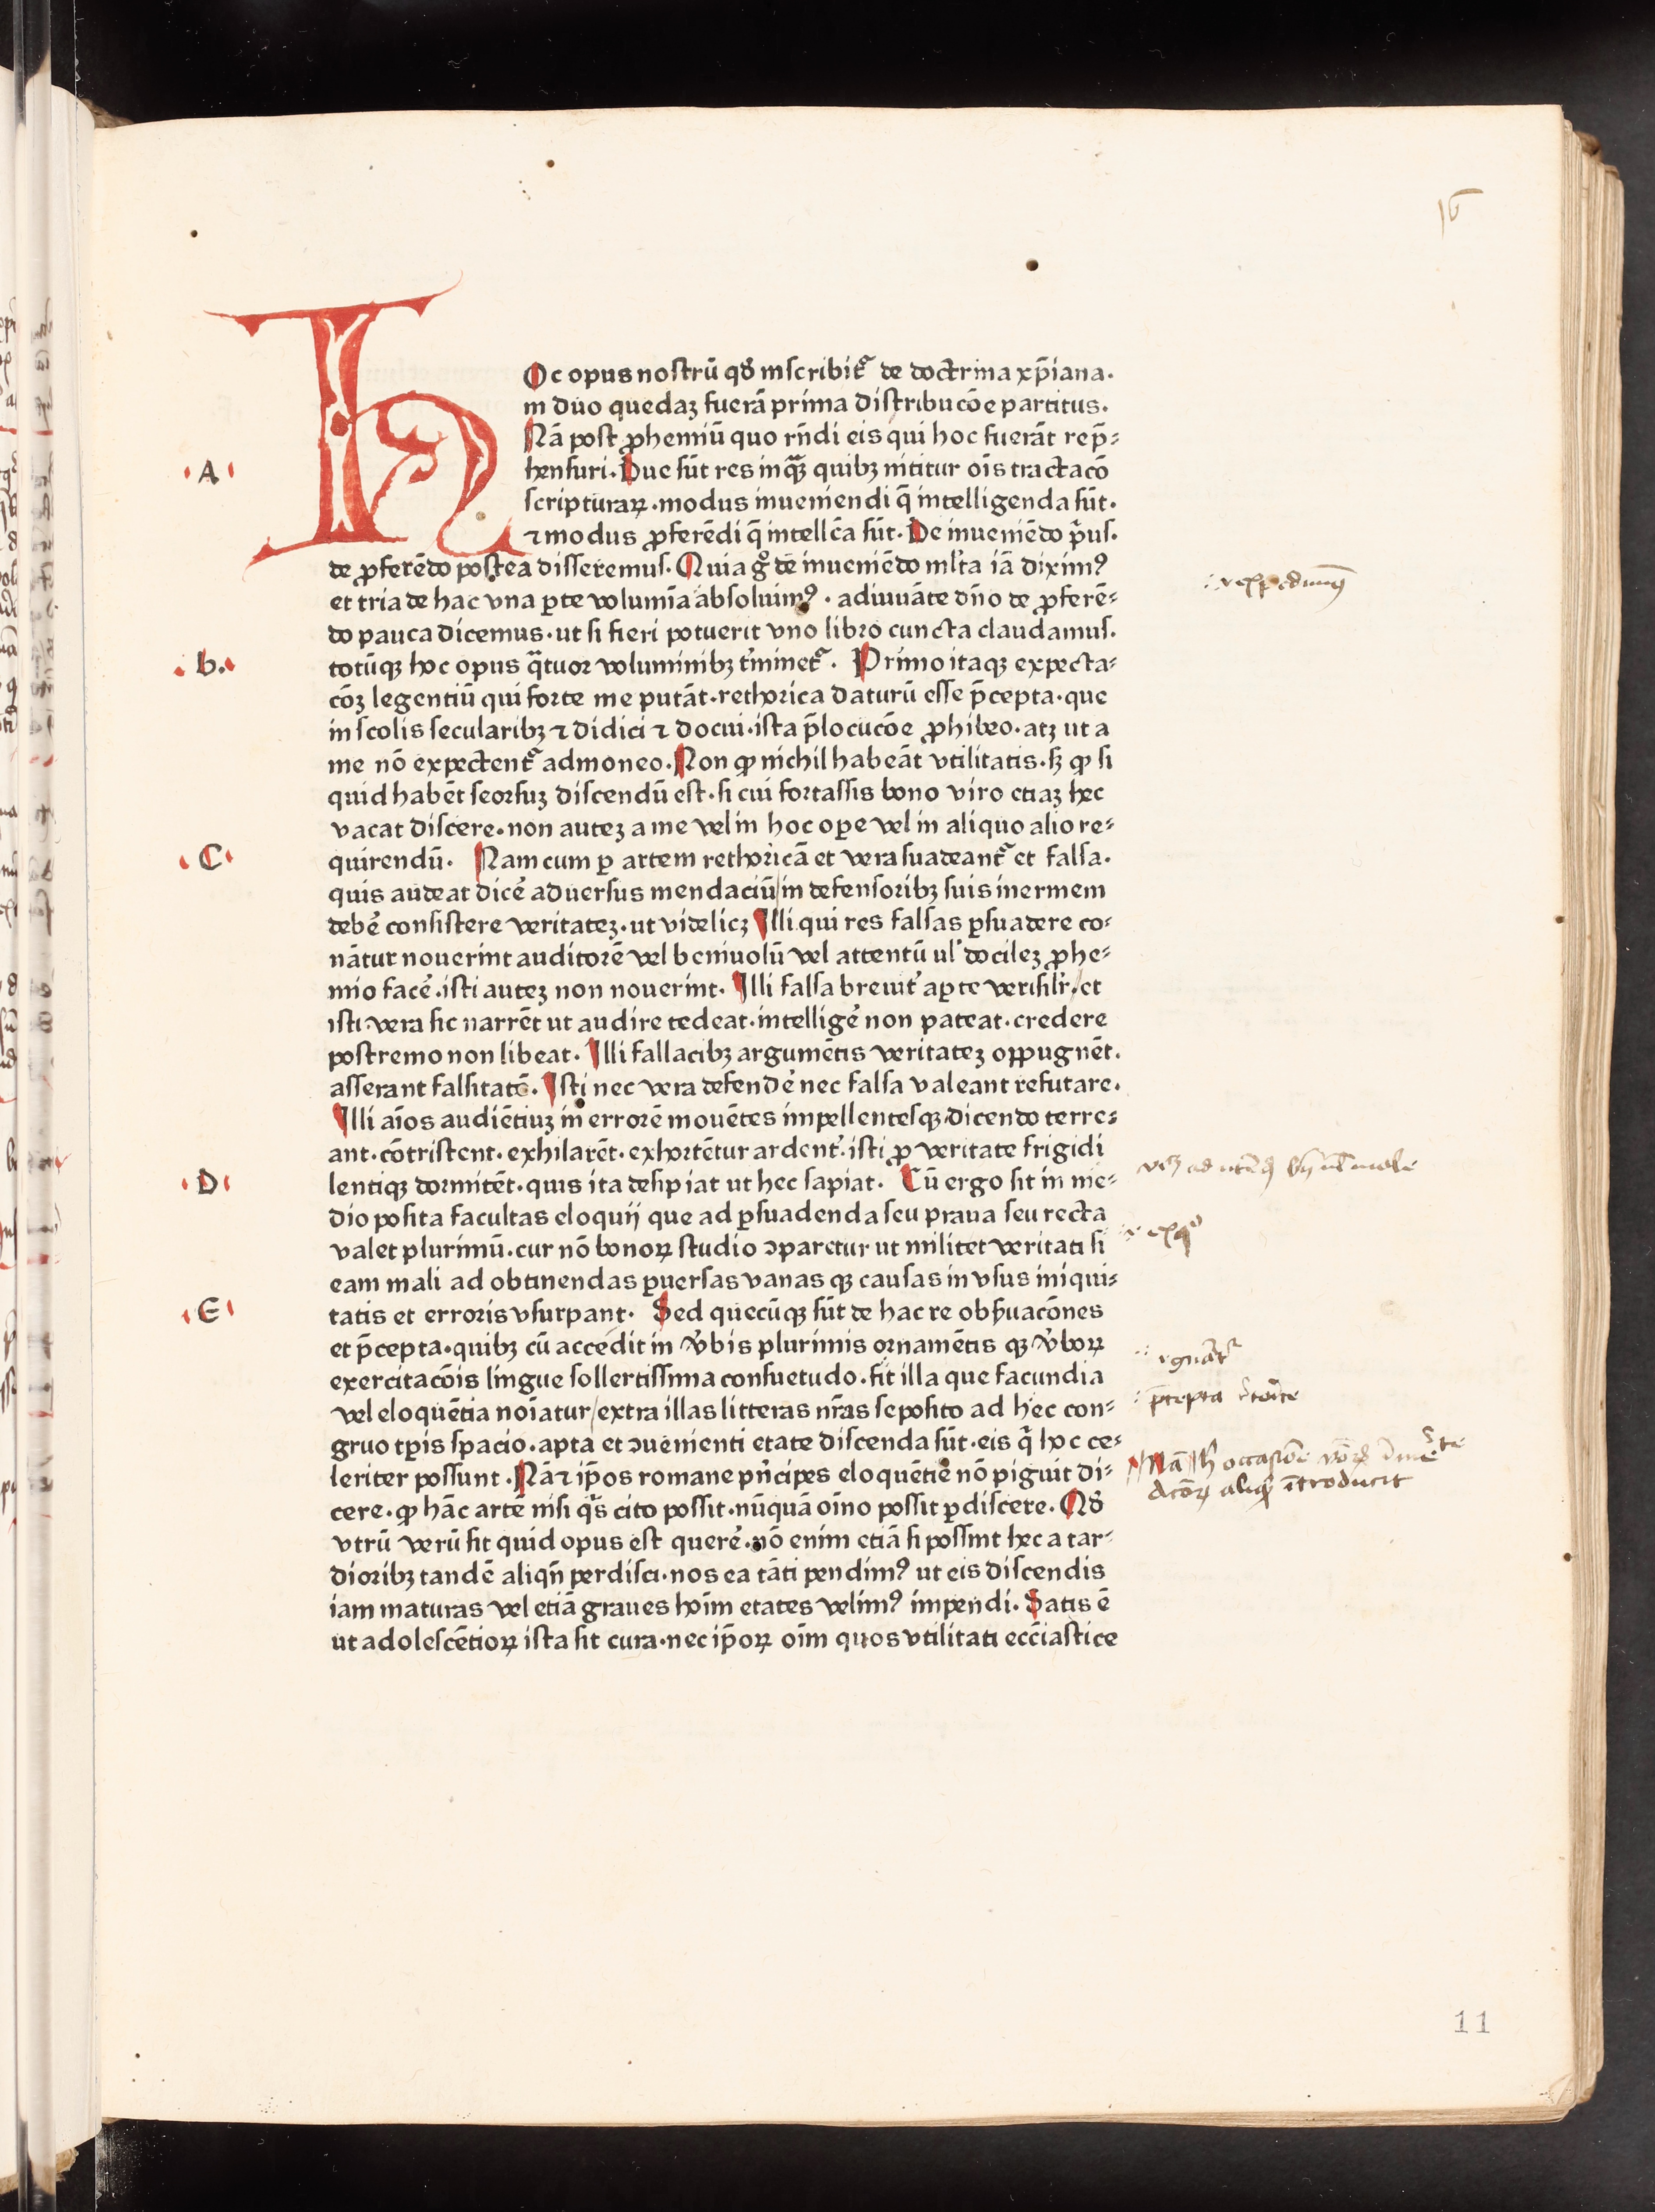 HOc opus nostrū qđ inscribit᷑ de doctrina xp̄iana.
in duo quedaꝫ fuerā prima distribucōe partitus.
Nā post ꝓhemiū quo rn̄di eis qui hoc fuerāt rep̄⸗
A
hensuri. Due sūt res inqᷓꝫ quibꝫ nititur oīs tractacō
scripturaꝝ. modus inueniendi q̄ intelligenda sūt.
⁊ modus ꝓferēdi q̄ intellc̄a sūt. De inueniēdo p̓us.
de ꝓferēdo postea disseremus. Quia gͦ de inueniēdo ml̓ta iā diximꝰ
et tria de hac vna ꝑte volumīa absoluimꝰ. adiuuāte dn̄o de ꝓferē⸗
do pauca dicemus. ut si fieri potuerit vno libro cuncta claudamus.
b.
totūqꝫ hoc opus qᷓtuor voluminibꝫ t̓minet᷑. Primo itaqꝫ expecta⸗
cōꝫ legentiū qui forte me putāt. rethorica daturū esse p̄cepta. que
in scolis secularibꝫ ⁊ didici ⁊ docui. ista p̄locucōe ꝓhibeo. atꝫ ut a
me nō expectent᷑ admoneo. Non ꝙ nichil habeāt vtilitatis. sꝫ ꝙ si
quid habēt seorsuꝫ discendū est. si cui fortassis bono viro etiaꝫ hec
vacat discere. non auteꝫ a me vel in hoc oꝑe vel in aliquo alio re⸗
C
quirendū. Nam cum ꝑ artem rethoricā et vera suadeant᷑ et falsa.
quis audeat dicē aduersus mendaciū/in defensoribꝫ suis inermem
debē consistere veritateꝫ. ut videlicꝫ Illi qui res falsas ꝑsuadere co⸗
nātur nouerint auditorē vel beniuolū vel attentū ul̓ docileꝫ ꝓhe⸗
mio facē. isti auteꝫ non nouerint. Illi falsa breuit̓ aꝑte verisilr̓./et
isti vera sic narrēt ut audire tedeat. intelligē non pateat. credere
postremo non libeat. Illi fallacibꝫ argumētis veritateꝫ oppugnēt.
asserant falsitatē. Isti nec vera defendē nec falsa valeant refutare.
Illi aīos audiētiuꝫ in errorē mouētes impellentesqꝫ dicendo terre⸗
ant. cōtristent. exhilarēt. exhortētur ardent̓. isti ꝓ veritate frigidi
D
lentiqꝫ dormitēt. quis ita desipiat ut hec sapiat. Cū ergo sit in me⸗
dio posita facultas eloquij que ad ꝑsuadenda seu praua seu recta
valet plurimū. cur nō bonoꝝ studio ꝯparetur ut militet veritati si
eam mali ad obtinendas ꝑuersas vanas qꝫ causas in vsus iniqui⸗
E
tatis et erroris vsurpant. Sed quecūqꝫ sūt de hac re obẜuacōnes
et p̄cepta. quibꝫ cū accedit in v̓bis plurimis ornamētis qꝫ v̓boꝝ
exercitacōis lingue sollertissima consuetudo. fit illa que facundia
vel eloquētia noīatur/extra illas litteras nr̄as seposito ad hec con⸗
gruo tꝑis spacio. apta et ꝯuenienti etate discenda sūt. eis qͥ hoc ce⸗
leriter possunt. Nā ⁊ ip̄os romane pn̓cipes eloquētie nō piguit di⸗
cere. ꝙ hāc artē nisi qͥs cito possit. nūquā oīno possit ꝑdiscere. Qđ
vtrū verū sit quid opus est querē. nō enim etiā si possint hec a tar⸗
dioribꝫ tandē aliqn̄ perdisci. nos ea tāti pendimꝰ ut eis discendis
iam maturas vel etiā graues hoīm etates velimꝰ impendi. Satis ē
ut adolescētioꝝ ista sit cura. nec ip̄oꝝ oīm quos vtilitati ecc̄iastice
p̄cepta
Nā occasiōe
aliqͥ ītroducit
16
11